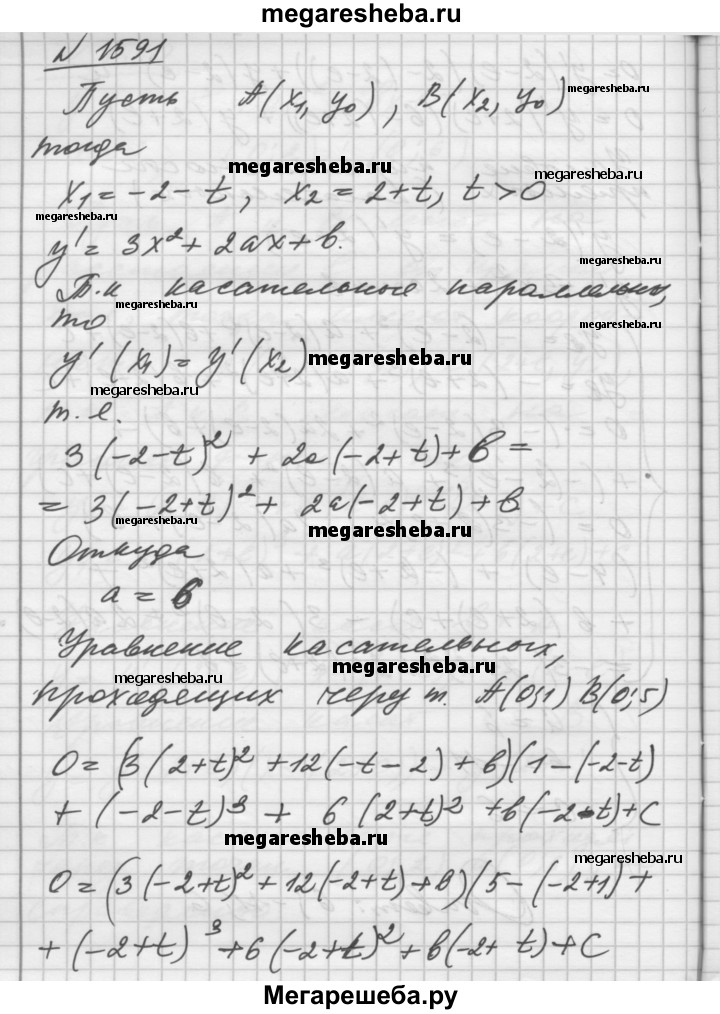 megaresheba.ru
N 1591
Пусть A(x₁, y₀), B(x₂, y₀)
megaresheba.ru
тогда
megaresheba.ru
megaresheba.ru
x₁ = -2 - t, x₂ = 2 + t, t > 0
megaresheba.ru
y' = 3x² + 2ax + b.
megaresheba.ru
Т.к касательные параллельны,
megaresheba.ru
то
megaresheba.ru
y'(x₁) = y'(x₂)
megaresheba.ru
megaresheba.ru
т.е.
3(-2-t)² + 2a(-2+t) + b =
= 3(-2+t)² + 2a(-2+t) + b
megaresheba.ru
megaresheba.ru
Откуда
a = 6
megaresheba.ru
Уравнение касательных,
megaresheba.ru
megaresheba.ru
проходящих через т. A(0;1) B(0;5)
0 = (3(2+t)² + 12(-t-2) + b)(1-(-2-t)
+ (-2-t)³ + 6(2+t)² + b(-2-t) + C
megaresheba.ru
megaresheba.ru
0 = (3(-2+t)² + 12(-2+t) + b)(5-(-2+1) +
+ (-2+t)³ + 6(-2+t)² + b(-2+t) + C
Мегарешеба.ру